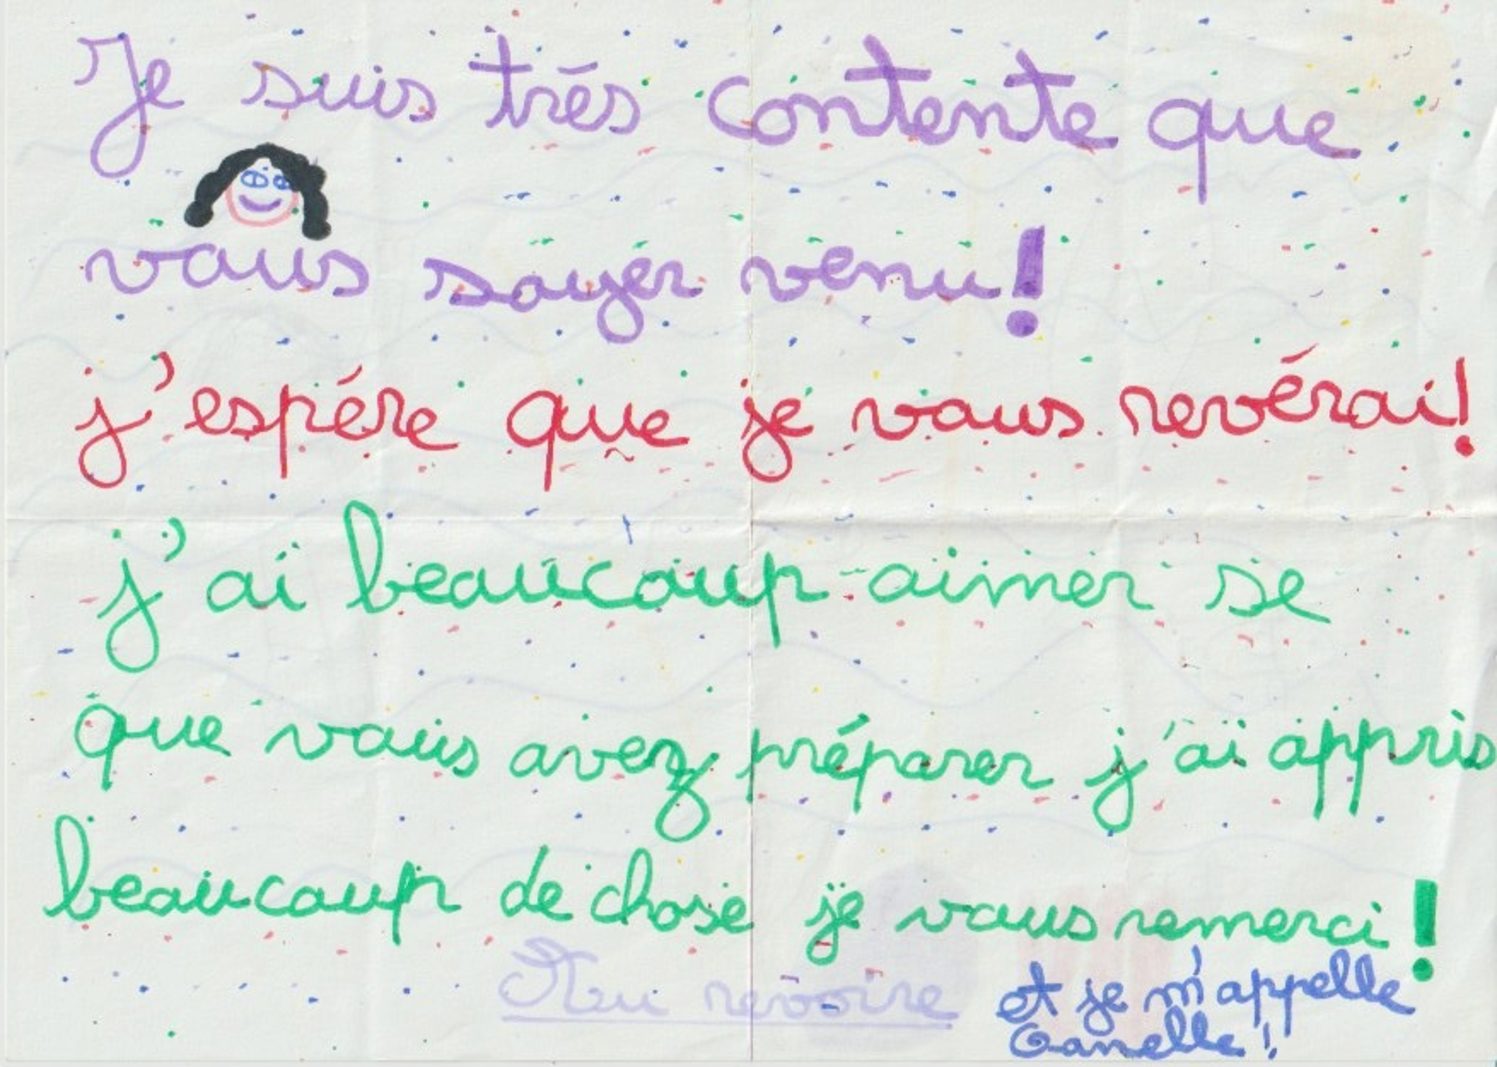 Je suis trés contente que
vous soyer venu!
j'espére que je vous revérai!
j'ai beaucoup aimer se
que vous avez préparer j'ai appris
beaucoup de chose je vous remerci!
Au revoire
et je m'appelle
Canelle!